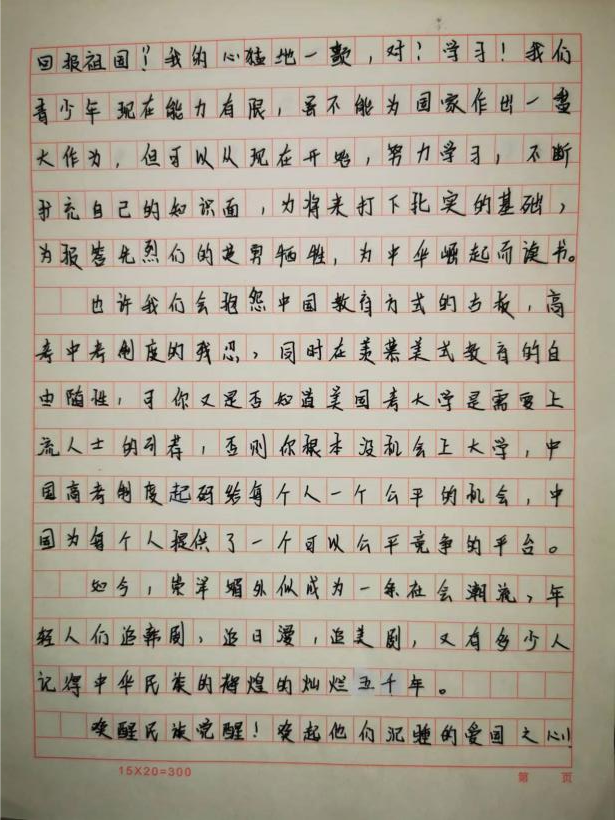 回报祖国!"我的心猛地一颤，对！学习！我们
青少年现在能力有限，虽不能为国家作出一番
大作为，但可以从现在开始，努力学习，不断
扩充自己的知识面，为将来打下扎实的基础，
为报答先烈们的英勇牺牲，为中华崛起而读书。
也许我们会抱怨中国教育方式的古板，高
考中考制度的残忍，同时在羡慕美式教育的自
由随性，可你又是否知道美国考大学是需要上
流人士的引荐，否则你根本没机会上大学，中
国高考制度起码给每个人一个公平的机会，中
国为每个人提供了一个可以公平竞争的平台。
如今，崇洋媚外似成为一条社会潮流，年
轻人们追韩剧，追日漫，追美剧，又有多少人
记得中华民族的辉煌的灿烂五千年。
唤醒民族觉醒！唤起他们沉睡的爱国之心!
15X20=300
第 页